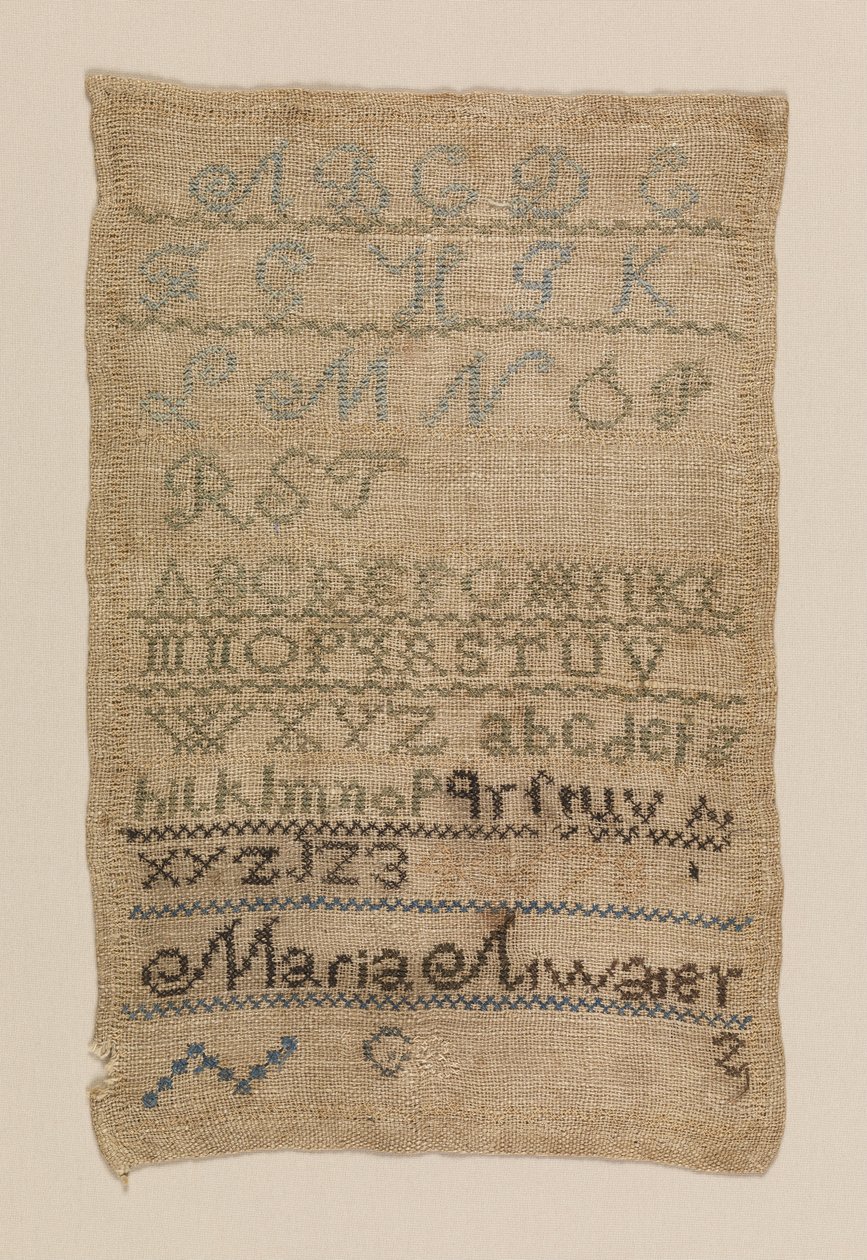 A B C D E
F G H I K
L M N O P
R S T
A B C D E F G H I K L
M N O P Q R S T U V
W X Y Z a b c d e f g
h i k l m n o p q r ſ t u v w
x y z 1 2 3
Maria Atwater